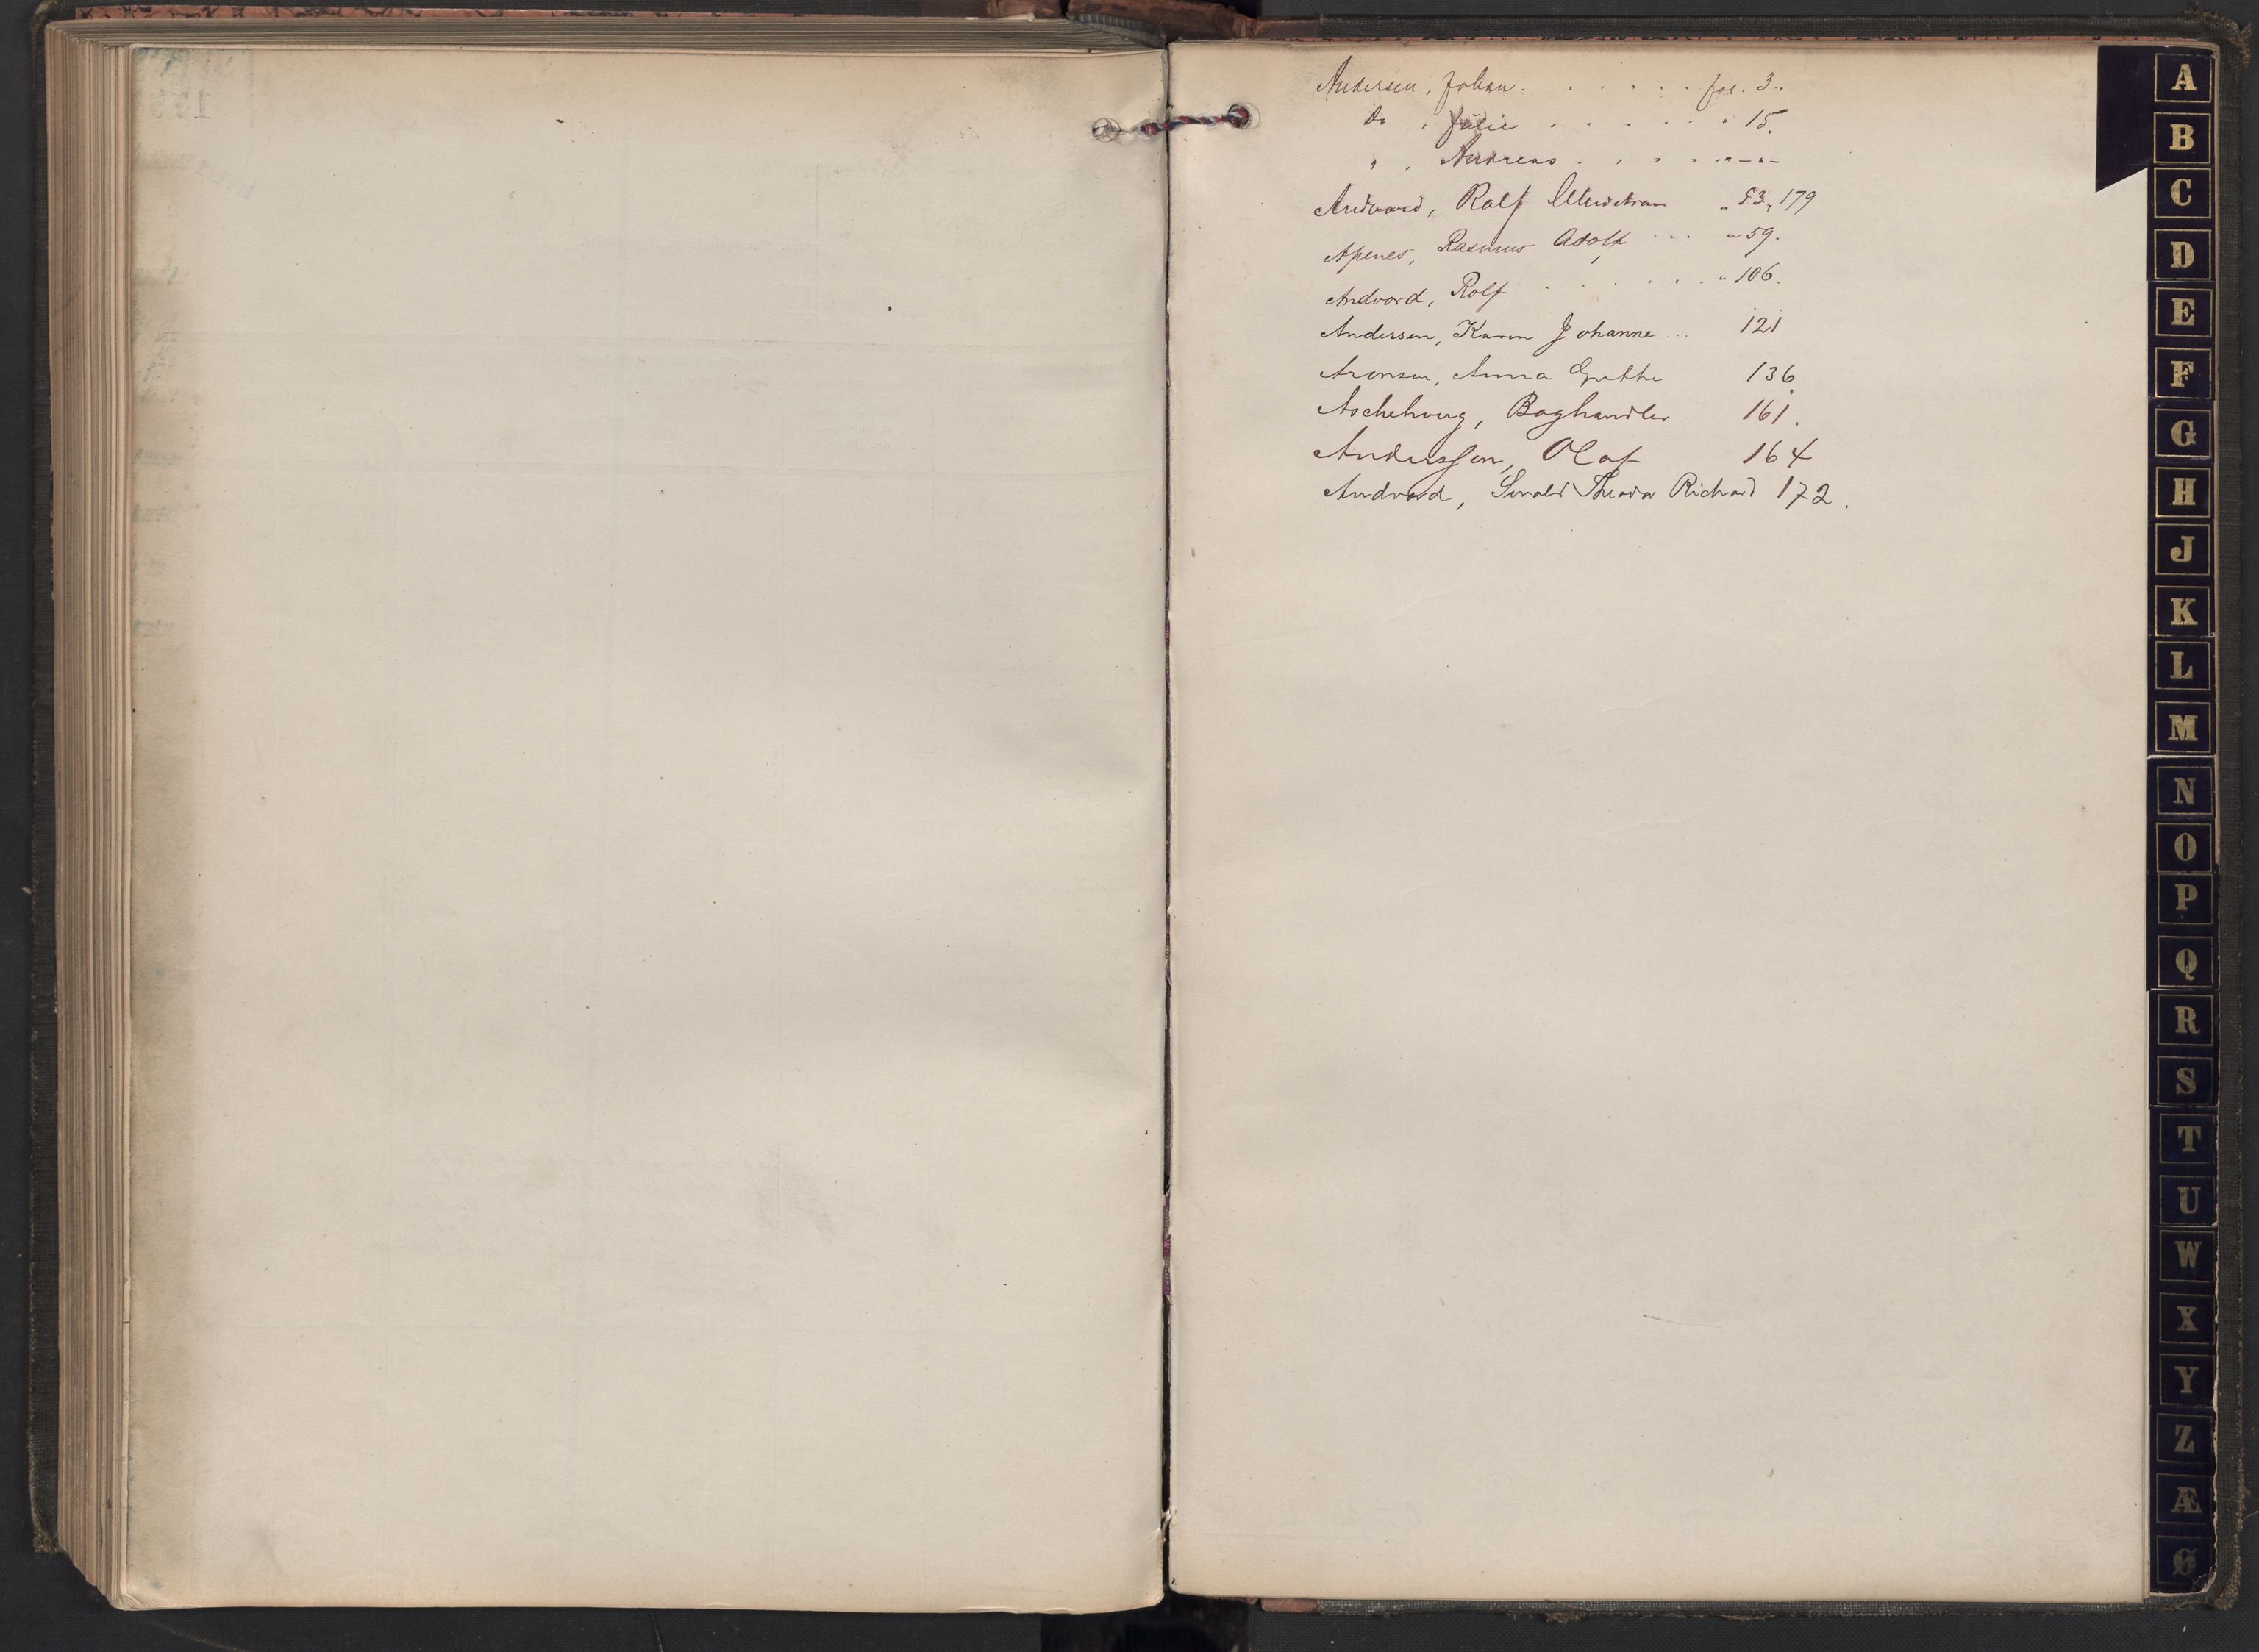 Andersen, Johan. . . . . . fol. 3.
Do , Julie . . . . . . " 15.
" , Andreas . . . . . " — " —
Andvord, Rolf " 53, 179
Apenes, Rasmus Adolf . . . " 59.
Andvord, Rolf . . . . . . " 106.
Andersen, Karen Johanne . . . 121
Aronsen, Anna Grethe 136
Aschehoug, Boghandler 161.
Anderssen, Olaf 164
Andvord, Theodor Richard 172.
A
B
C
D
E
F
G
H
J
K
L
M
N
O
P
Q
R
S
T
U
W
X
Y
Z
Æ
Ø